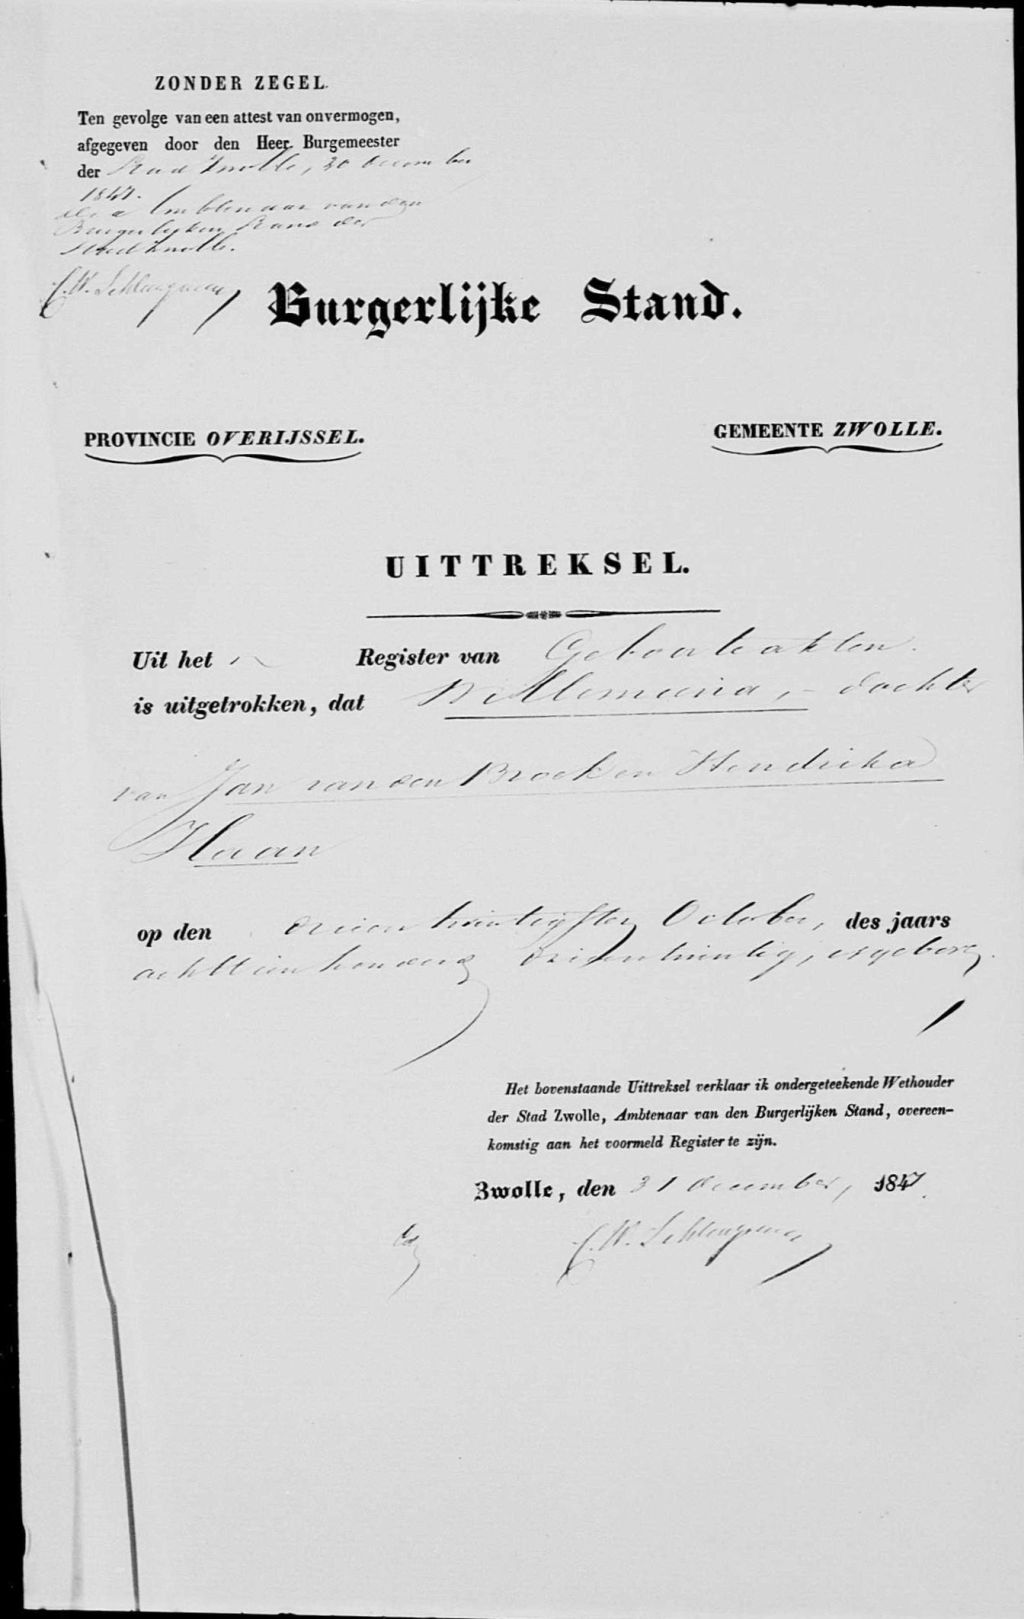 ZONDER ZEGEL.
Ten gevolge van een attest van onvermogen,
afgegeven door den Heer Burgemeester
der Stad Zwolle, 30 December
1847.
De Ambtenaar van den
Burgerlijken Stand der
Stad Zwolle.
Burgerlijke Stand.
PROVINCIE OVERIJSSEL.
GEMEENTE ZWOLLE.
UITTREKSEL.
Uit het Register van Geboorteakten.
is uitgetrokken, dat Willemina, dochter
van Jan van den Broek en Hendrika
Haan
op den drieentwintigsten October, des jaars
achttienhonderd drieentwintig, is geboren.
Het bovenstaande Uittreksel verklaar ik ondergeteekende Wethouder
der Stad Zwolle, Ambtenaar van den Burgerlijken Stand, overeen-
komstig aan het voormeld Register te zijn.
Zwolle, den 31 December, 1847.